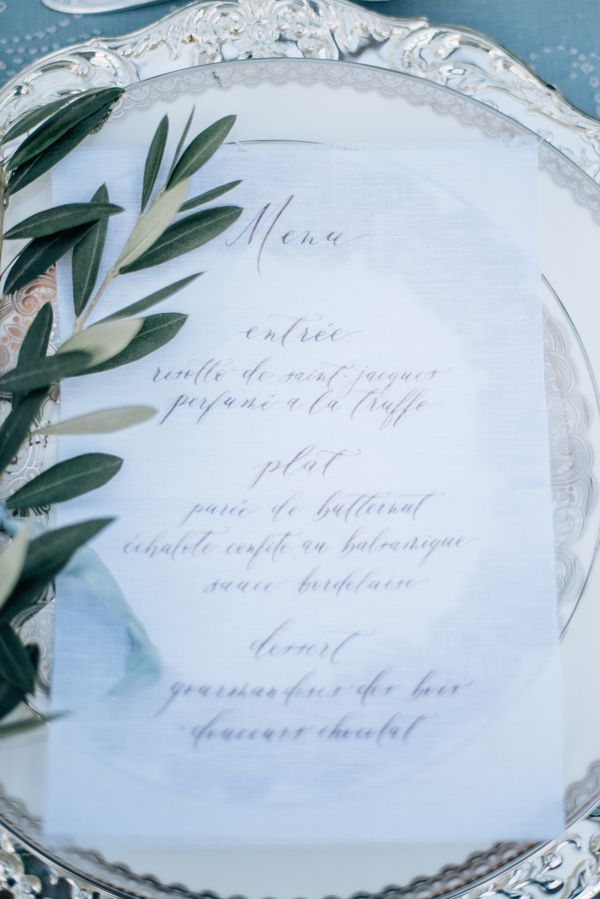 Menu
entrée
risotto de saint-jacques
parfumé a la truffe
plat
purée de butternut
échalote confite au balsamique
sauce bordelaise
dessert
gourmandises des bois
douceurs chocolat